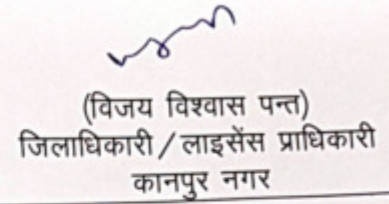 (विजय विश्वास पन्त)
जिलाधिकारी / लाइसेंस प्राधिकारी
कानपुर नगर